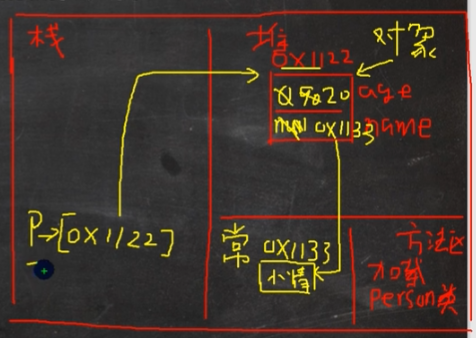 栈
堆
对象
0X1122
20
age
0X1133
name
P→[0X1122]
常
0X1133
小倩
方法区
加载
Person类